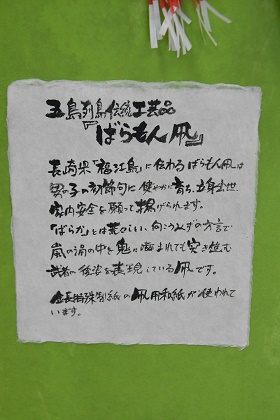 五島列島伝統工芸品
『ばらもん凧』
長崎県「福江島」に伝わるばらもん凧は
男の子の初節句に健やかに育ち、立身出世
家内安全を願って揚げられます。
「ばらか」とは荒々しい、向こうみずの方言で
嵐の渦の中を鬼に噛まれても突き進む
武者の後姿を表現している凧です。
全長特殊製紙の凧用和紙が使われて
います。